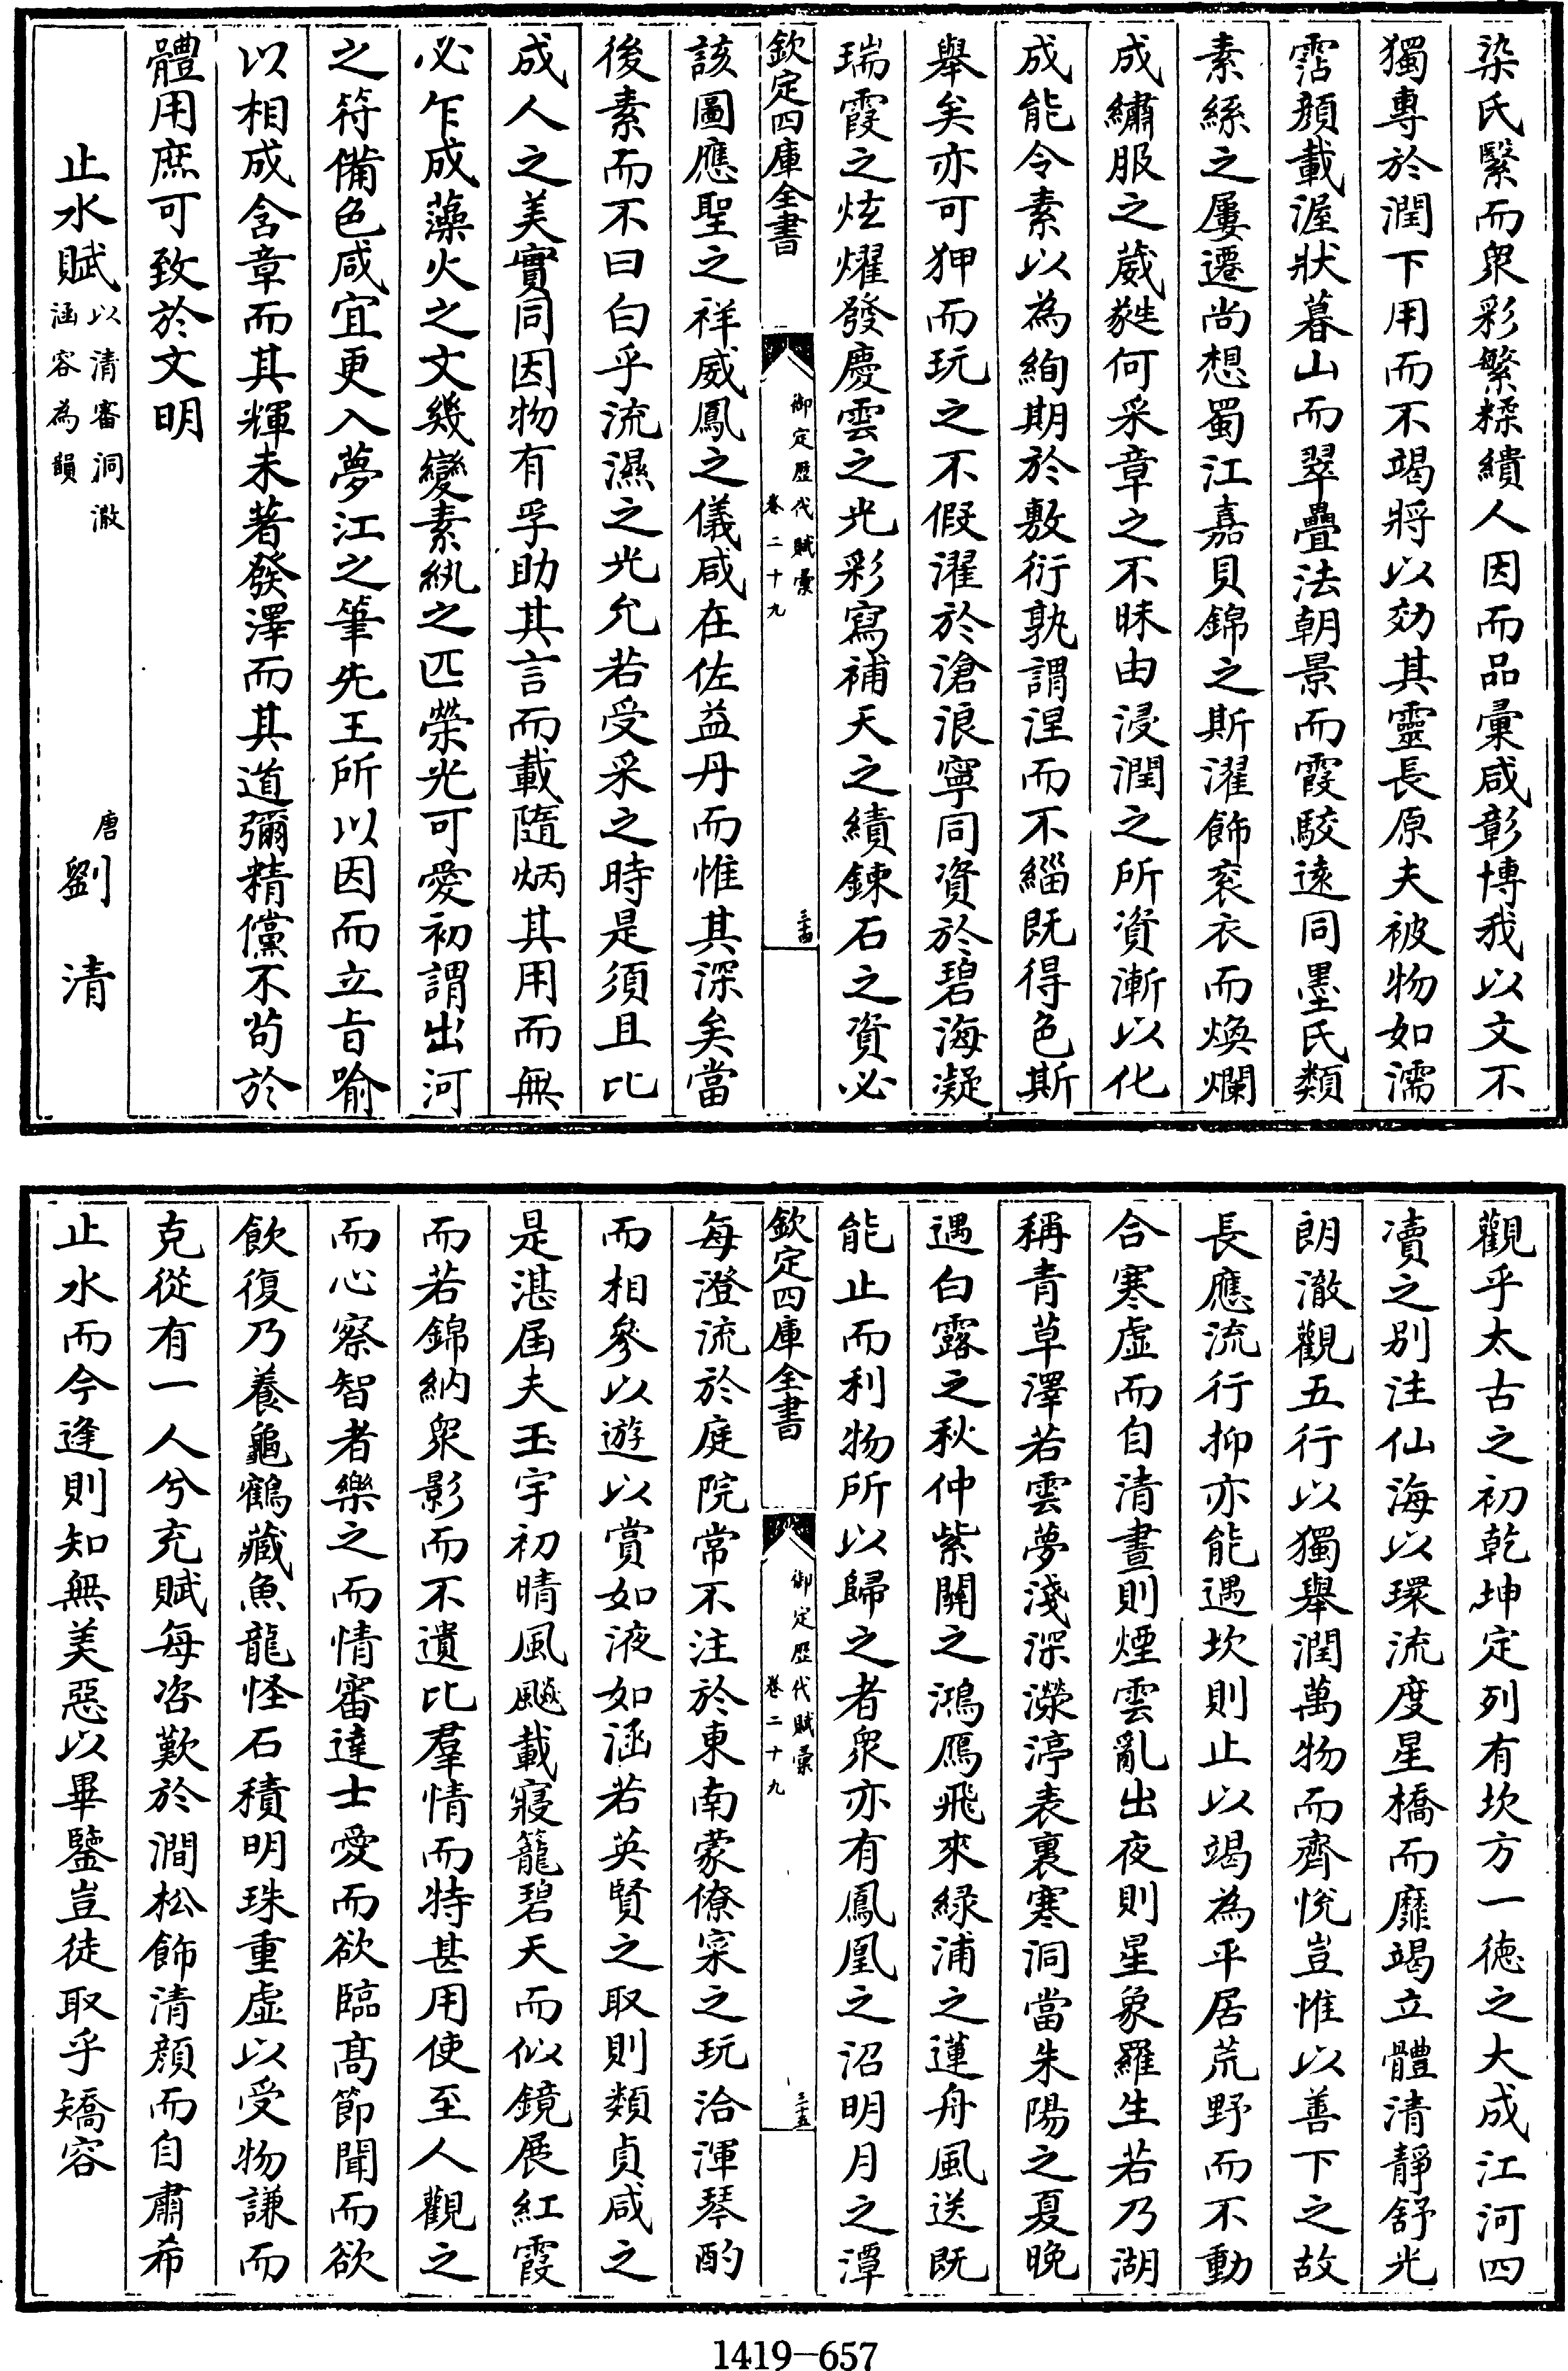 染氏繄而衆彩繁糅繢人因而品彙咸彰博我以文不
獨專於潤下用而不竭將以効其靈長原夫被物如濡
霑顏載渥狀暮山而翠疊法朝景而霞駮遠同墨氏類
素絲之屢遷尚想蜀江嘉貝錦之斯濯飾衮衣而煥爛
成繡服之葳蕤何采章之不昧由浸潤之所資漸以化
成能令素以為絢期於敷衍孰謂涅而不緇既得色斯
舉矣亦可狎而玩之不假濯於滄浪寧同資於碧海凝
瑞霞之炫燿發慶雲之光彩寫補天之績鍊石之資必
欽定四庫全書
御定歷代賦彙
卷二十九
三十四
該圖應聖之祥威鳳之儀咸在佐益丹而惟其深矣當
後素而不曰白乎流濕之光允若受采之時是須且比
成人之美實同因物有孚助其言而載隨炳其用而無
必乍成藻火之文幾變素紈之匹榮光可愛初謂出河
之符備色咸宜更入夢江之筆先王所以因而立旨喻
以相成含章而其輝未著發澤而其道彌精儻不茍於
體用庶可致於文明
止水賦以清審洞澈涵容為韻
唐劉清
觀乎太古之初乾坤定列有坎方一德之大成江河四
瀆之別注仙海以環流度星橋而靡竭立體清靜舒光
朗澈觀五行以獨舉潤萬物而齊悅豈惟以善下之故
長應流行抑亦能遇坎則止以竭為平居荒野而不動
合寒虛而自清晝則煙雲亂出夜則星象羅生若乃湖
稱青草澤若雲夢淺深濴渟表裏寒洞當朱陽之夏晚
遇白露之秋仲紫關之鴻鴈飛來綠浦之蓮舟風送既
能止而利物所以歸之者衆亦有鳳凰之沼明月之潭
欽定四庫全書
御定歷代賦彙
卷二十九
三十五
每澄流於庭院常不注於東南蒙僚寀之玩洽渾琴酌
而相參以遊以賞如液如涵若英賢之取則類貞咸之
是湛屆夫玉宇初晴風飈載寢籠碧天而似鏡展紅霞
而若錦納衆影而不遺比羣情而特甚用使至人觀之
而心察智者樂之而情審達士愛而欲臨高節聞而欲
飲復乃養龜鶴藏魚龍怪石積明珠重虛以受物謙而
克從有一人兮充賦每咨歎於澗松飾清顏而自肅希
止水而今逢則知無美惡以畢鑒豈徒取乎矯容
1419-657